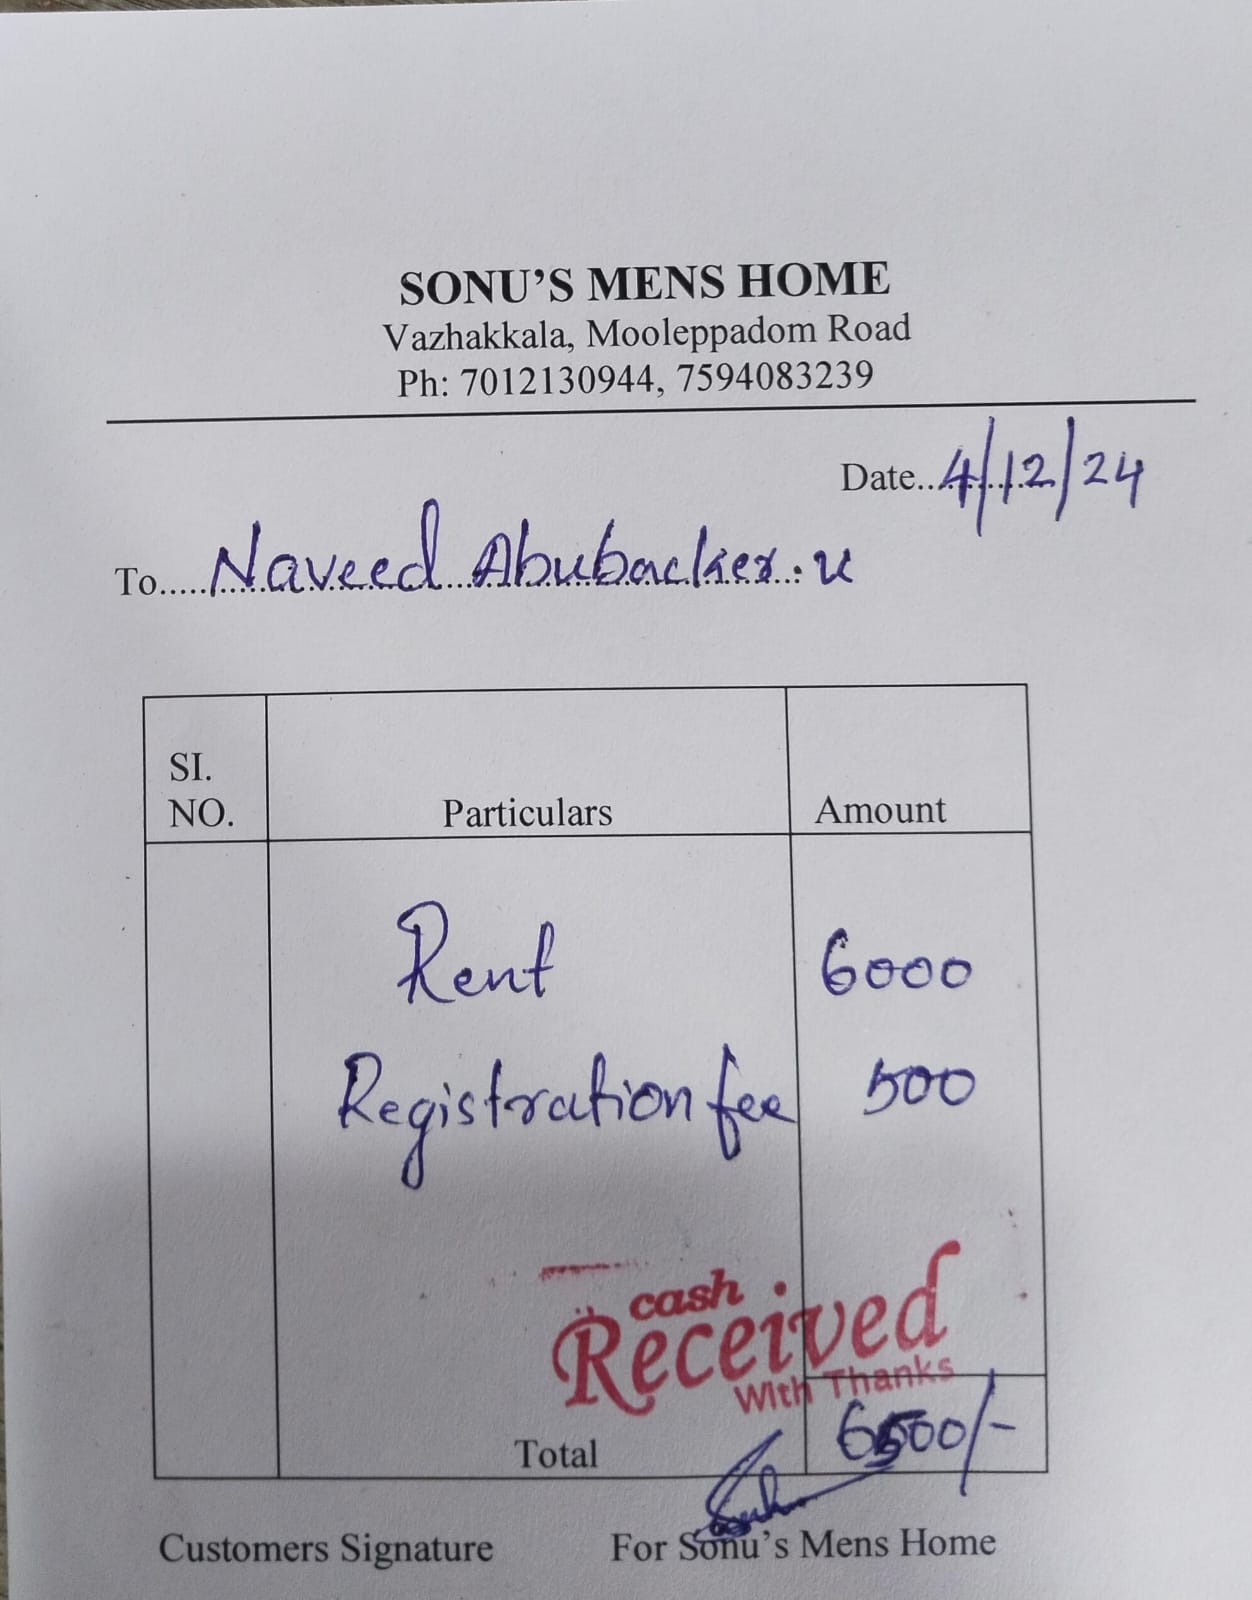 SONU'S MENS HOME
Vazhakkala, Mooleppadom Road
Ph: 7012130944, 7594083239
Date..4/12/24
To.....Naveed Abubacker.u
SI.
NO. Particulars Amount
Rent 6000
Registration fee 500
cash
Received
With Thanks
Total 6500/-
Customers Signature For Sonu's Mens Home